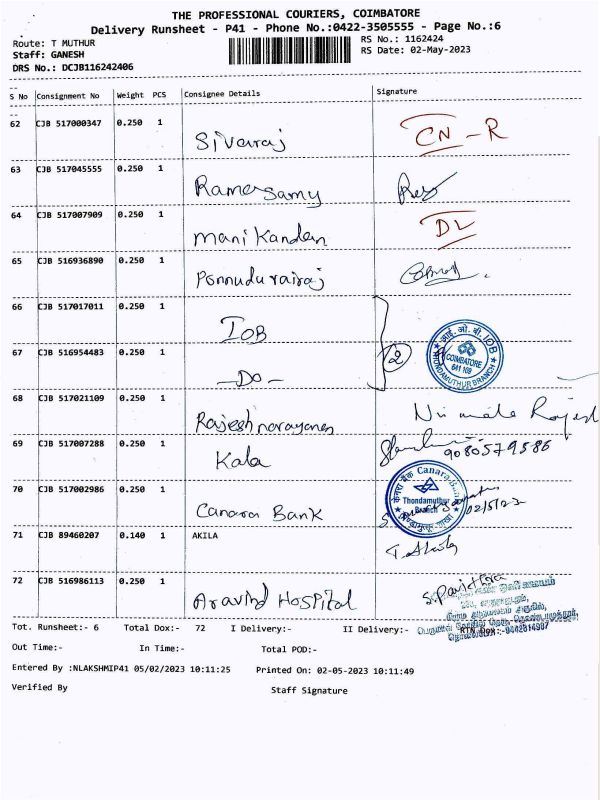 THE PROFESSIONAL COURIERS, COIMBATORE
Delivery Runsheet - P41 - Phone No.:0422-3505555 - Page No.:6
Route: T MUTHUR RS No.: 1162424
Staff: GANESH RS Date: 02-May-2023
DRS No.: DCJB116242406
S No Consignment No Weight PCS Consignee Details Signature
62 CJB 517000347 0.250 1 Sivaraj CN - R
63 CJB 517045555 0.250 1 Ramasamy
64 CJB 517007909 0.250 1 Mani Kandan DL
65 CJB 516936890 0.250 1 Ponnudurairaj
66 CJB 517017011 0.250 1 IOB
67 CJB 516954483 0.250 1 -Do- 2
आई. ओ. बी. IOB
COIMBATORE
641 109
THONDAMUTHUR BRANCH
68 CJB 517021109 0.250 1 Rajesh narayanan
69 CJB 517007288 0.250 1 Kala 9080579586
70 CJB 517002986 0.250 1 Canara Bank
केनरा बैंक Canara Bank
Thondamuthur
Branch
02/5/23
71 CJB 89460207 0.140 1 AKILA
72 CJB 516986113 0.250 1 Aravind Hospital S. Pavithra
Tot. Runsheet:- 6 Total Dox:- 72 I Delivery:- II Delivery:- RTN Dox:-
Out Time:- In Time:- Total POD:-
Entered By :NLAKSHMIP41 05/02/2023 10:11:25 Printed On: 02-05-2023 10:11:49
Verified By Staff Signature